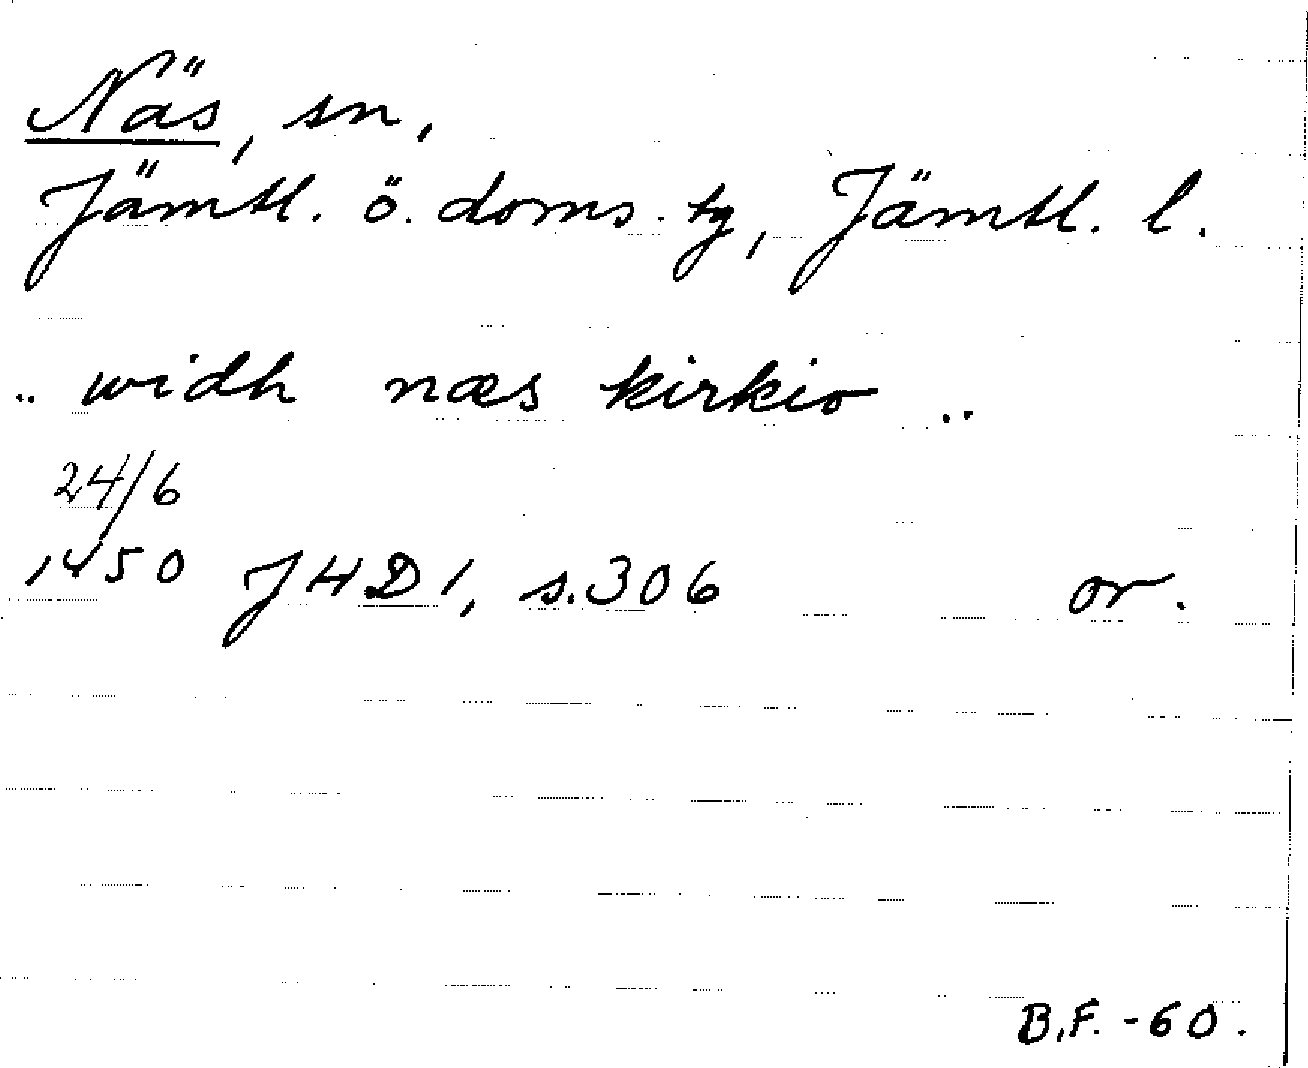 Näs, sn,
Jämtl. ö. doms. tg, Jämtl. l.
.. widh næs kirkio ..
24/6
1450 JHD 1, s. 306 or.
B.F. -60.